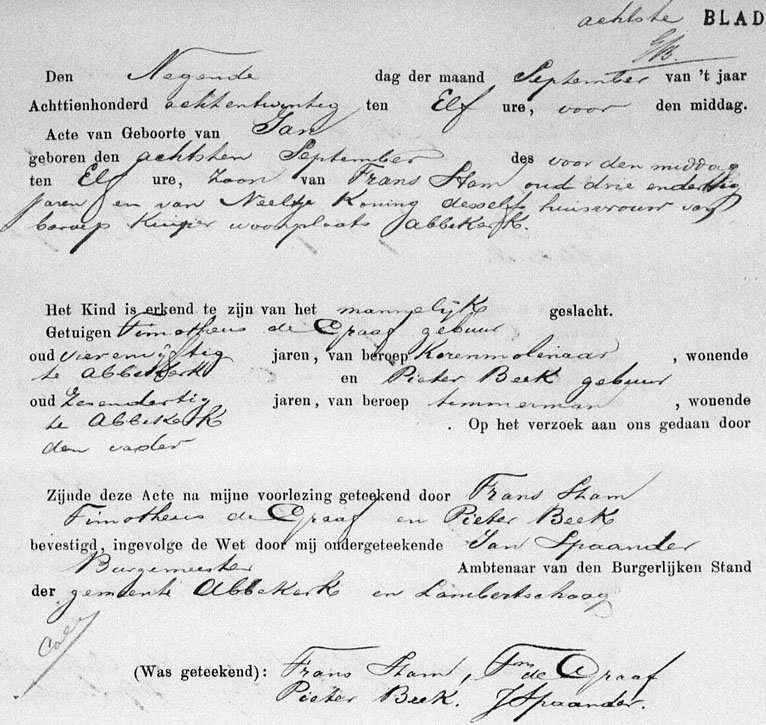 achtste BLAD
Den Negende dag der maand September van 't jaar
Achttienhonderd achtentwintig ten Elf ure, voor den middag.
Acte van Geboorte van Jan
geboren den achtsten September des voor den middag
ten Elf ure, zoon van Frans Stam oud drie endertig
jaren en van Neeltje Koning desselfs huisvrouw van
beroep Kuiper woonplaats Abbekerk.
Het Kind is erkend te zijn van het mannelijk geslacht.
Getuigen Timotheus de Graaf gebuur
oud vierenvijftig jaren, van beroep Korenmolenaar, wonende
te Abbekerk en Pieter Beek gebuur
oud Zesendertig jaren, van beroep timmerman, wonende
te Abbekerk . Op het verzoek aan ons gedaan door
den vader
Zijnde deze Acte na mijne voorlezing geteekend door Frans Stam
Timotheus de Graaf en Pieter Beek
bevestigd, ingevolge de Wet door mij ondergeteekende Jan Spaander
Burgemeester Ambtenaar van den Burgerlijken Stand
der gemeente Abbekerk en Lambertschaag
(Was geteekend): Frans Stam, Tms de Graaf
Pieter Beek. J Spaander.